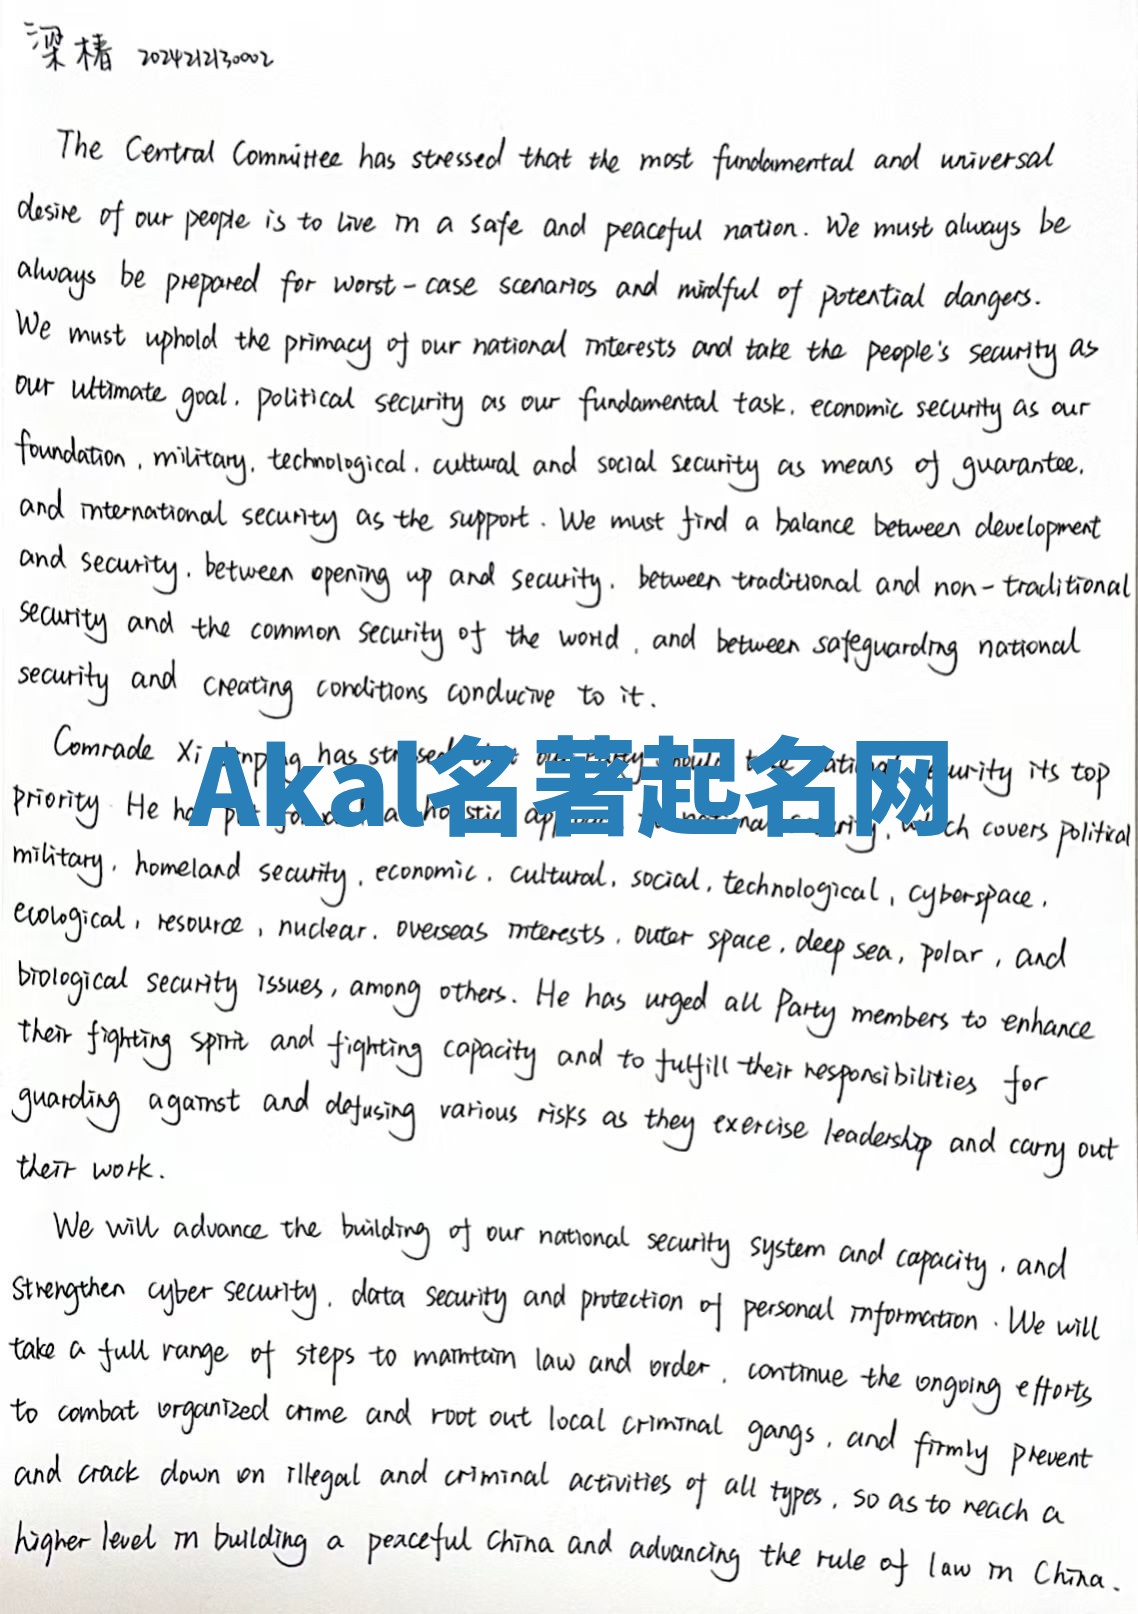 梁椿 2024212130002
The Central Committee has stressed that the most fundamental and universal
desire of our people is to live in a safe and peaceful nation. We must always be
always be prepared for worst-case scenarios and mindful of potential dangers.
We must uphold the primacy of our national interests and take the people's security as
our ultimate goal, political security as our fundamental task, economic security as our
foundation, military, technological, cultural and social security as means of guarantee,
and international security as the support. We must find a balance between development
and security, between opening up and security, between traditional and non-traditional
security and the common security of the world, and between safeguarding national
security and creating conditions conducive to it.
Comrade Xi Jinping has stressed that our Party should take national security its top
priority. He has put forward a holistic approach to national security, which covers political
military, homeland security, economic, cultural, social, technological, cyberspace,
ecological, resource, nuclear, overseas interests, outer space, deep sea, polar, and
biological security issues, among others. He has urged all Party members to enhance
their fighting spirit and fighting capacity and to fulfill their responsibilities for
guarding against and defusing various risks as they exercise leadership and carry out
their work.
We will advance the building of our national security system and capacity, and
strengthen cyber security, data security and protection of personal information. We will
take a full range of steps to maintain law and order, continue the ongoing efforts
to combat organized crime and root out local criminal gangs, and firmly prevent
and crack down on illegal and criminal activities of all types, so as to reach a
higher level in building a peaceful China and advancing the rule of law in China.
Akal名著起名网